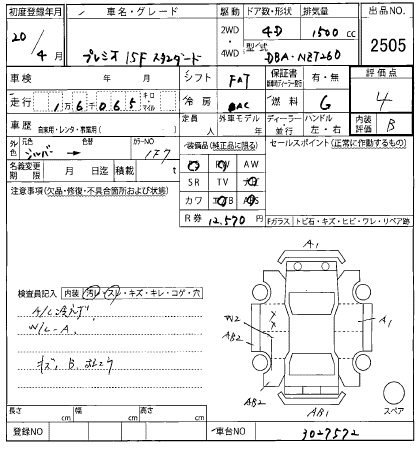 初度登録年月 車名・グレード 駆動 ドア数・形状 排気量 出品NO.
20/4月 プレミオ 15F スタンダード 2WD 4WD 4D 1500 cc 2505
型式 DBA-NZT260
車検 年 月 シフト FAT 保証書 有・無 評価点
走行 1万6千065 キロ マイル 冷房 AAC 燃料 G 4
車歴 自家用・レンタ・教習用( ) 定員 人 外車モデル 年 ディーラー 並行 ハンドル 左・右 内装評価 B
外色 元色 シルバー → 色替 カラーNO 1F7 装備品(純正品に限る) セールスポイント(正常に作動するもの)
名義変更期限 月 日迄 積載 t
AW
SR TV
カワ
R券 12,570円
注意事項(欠品・修復・不具合箇所および状態)
Fガラス トビ石・キズ・ヒビ・ワレ・リペア跡
検査員記入 内装 汚レ・スレ・キズ・キレ・コゲ・穴
A/C冷えず、
W/L-A.
キズ、B.
A1
A1
W2
AB2
AB2
AB1
スペア
長さ cm 幅 cm 高さ cm
登録NO 車台NO 3027572